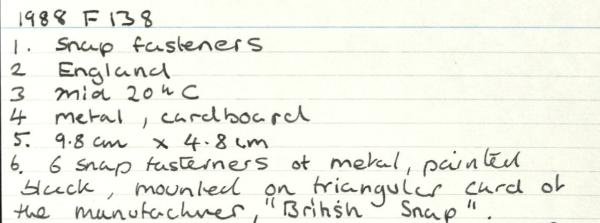 1988 F 138
1. Snap fasteners
2 England
3 mid 20th C
4 metal, cardboard
5. 9.8 cm x 4.8 cm
6. 6 snap fasterners of metal, painted
black, mounted on triangular card of
the manufacturer, "British Snap".